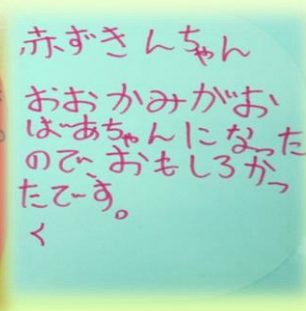 赤ずきんちゃん
おおかみがお
ばあちゃんになった
ので、おもしろかっ
たでーす。
く